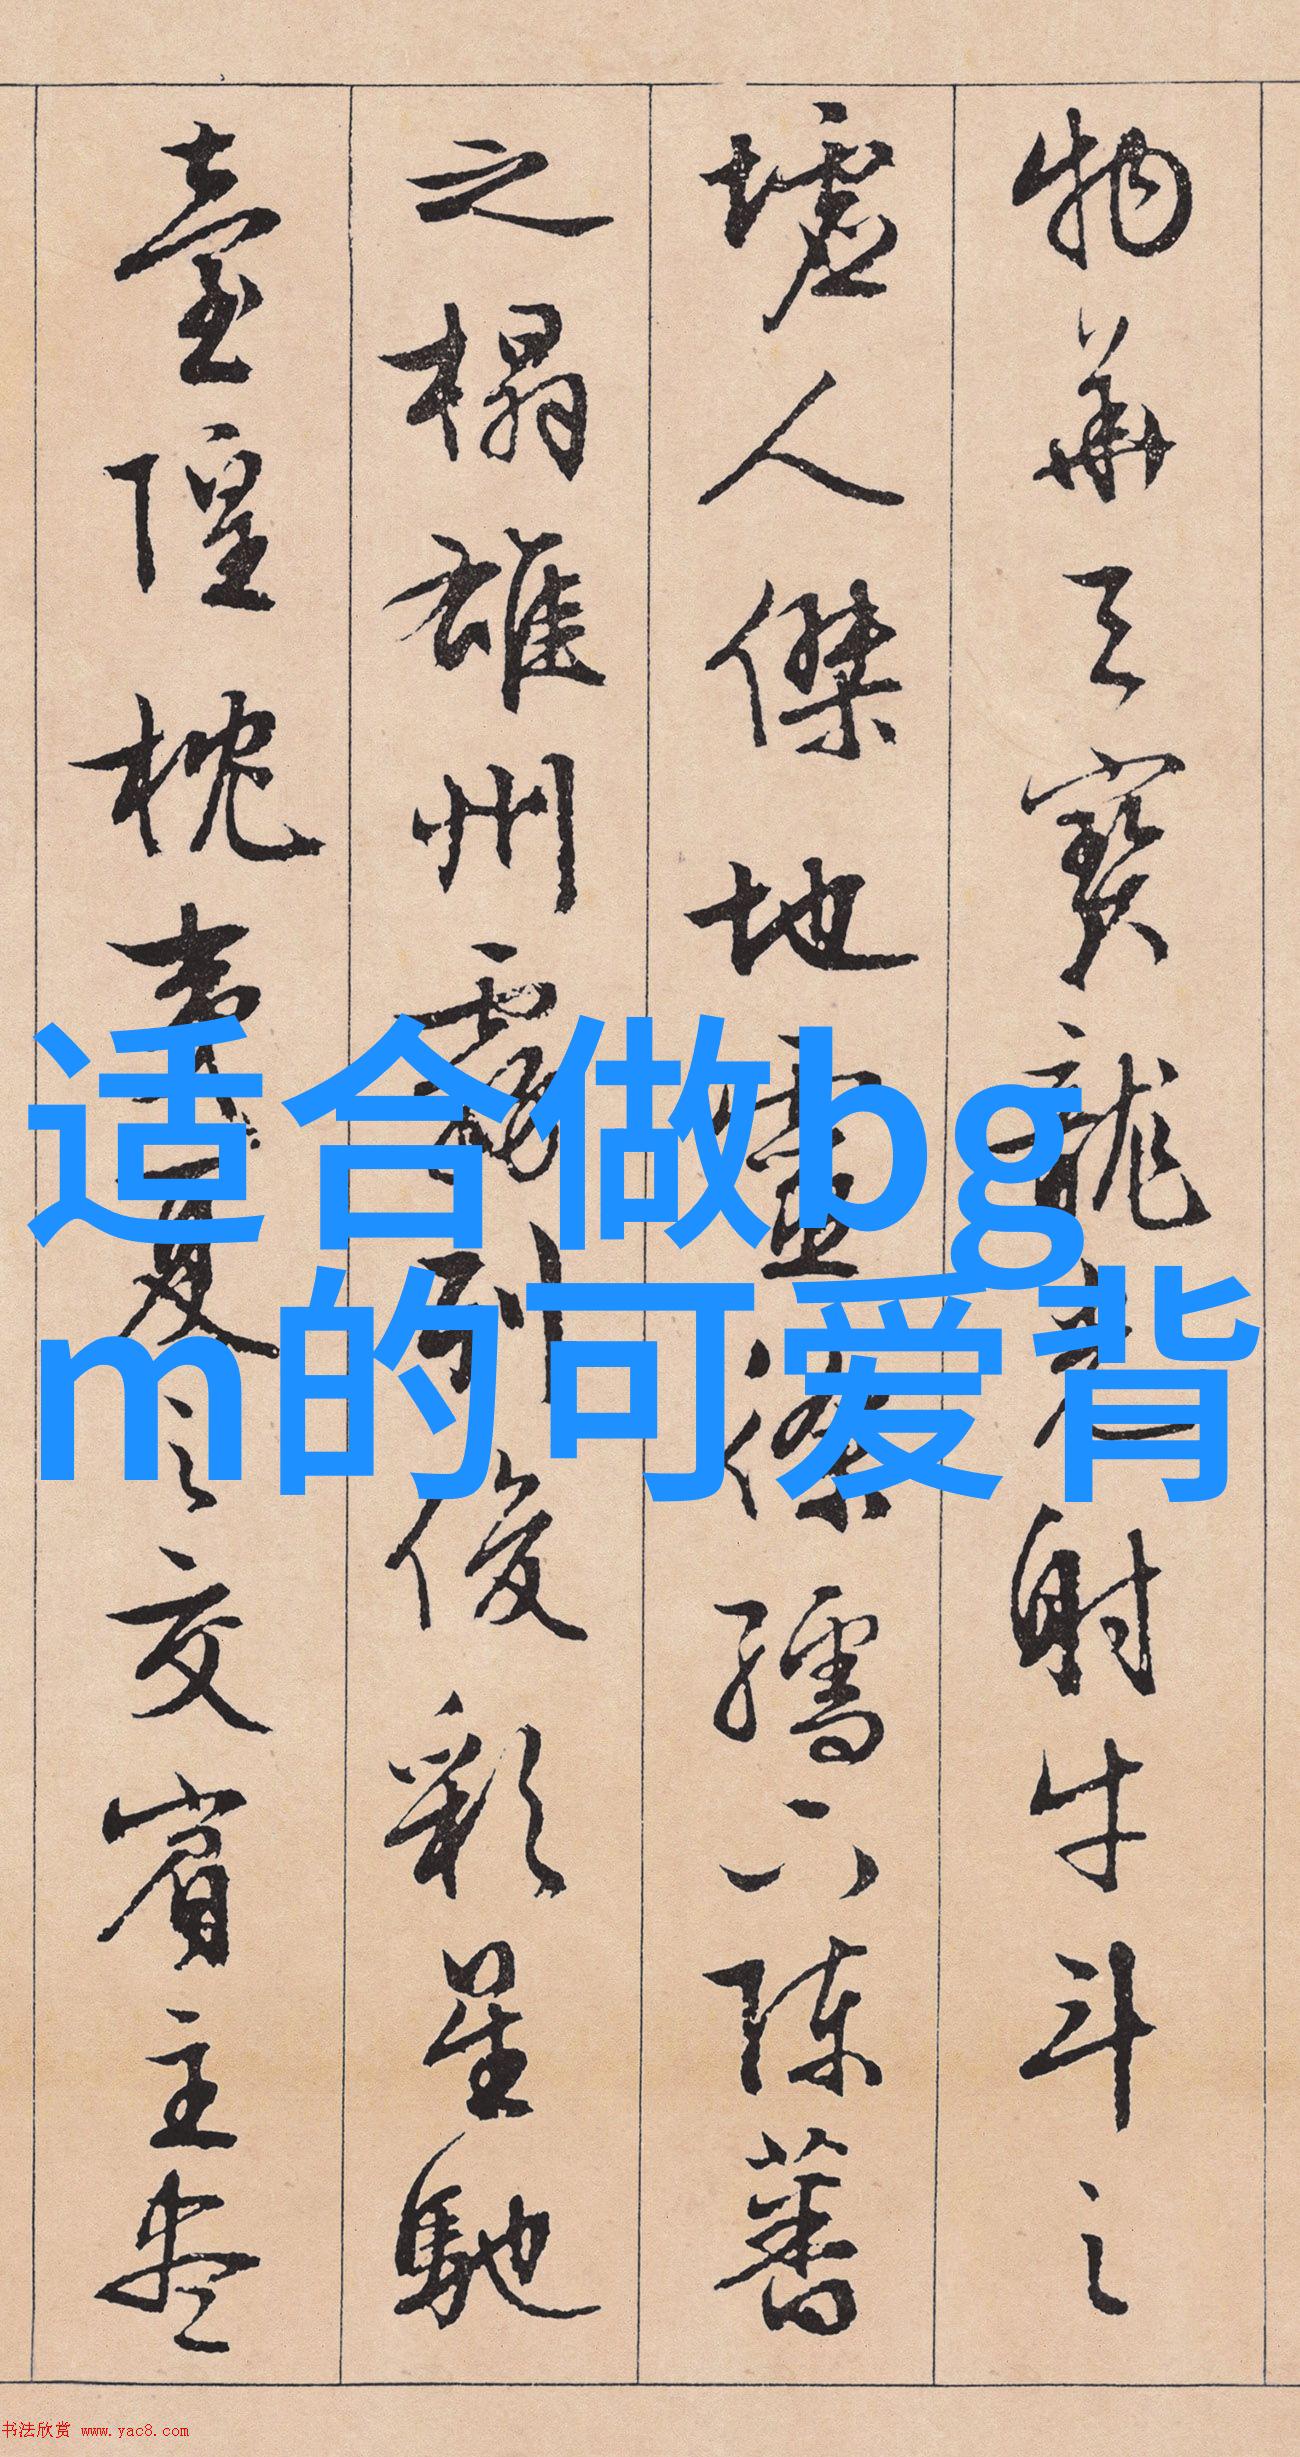 物華天寶龍光射牛斗之
墟人傑地靈徐孺下陳蕃
之榻雄州霧列俊彩星馳
臺隍枕夷夏之交賓主盡
适合做bg
m的可爱背
书法欣赏 www.yac8.com